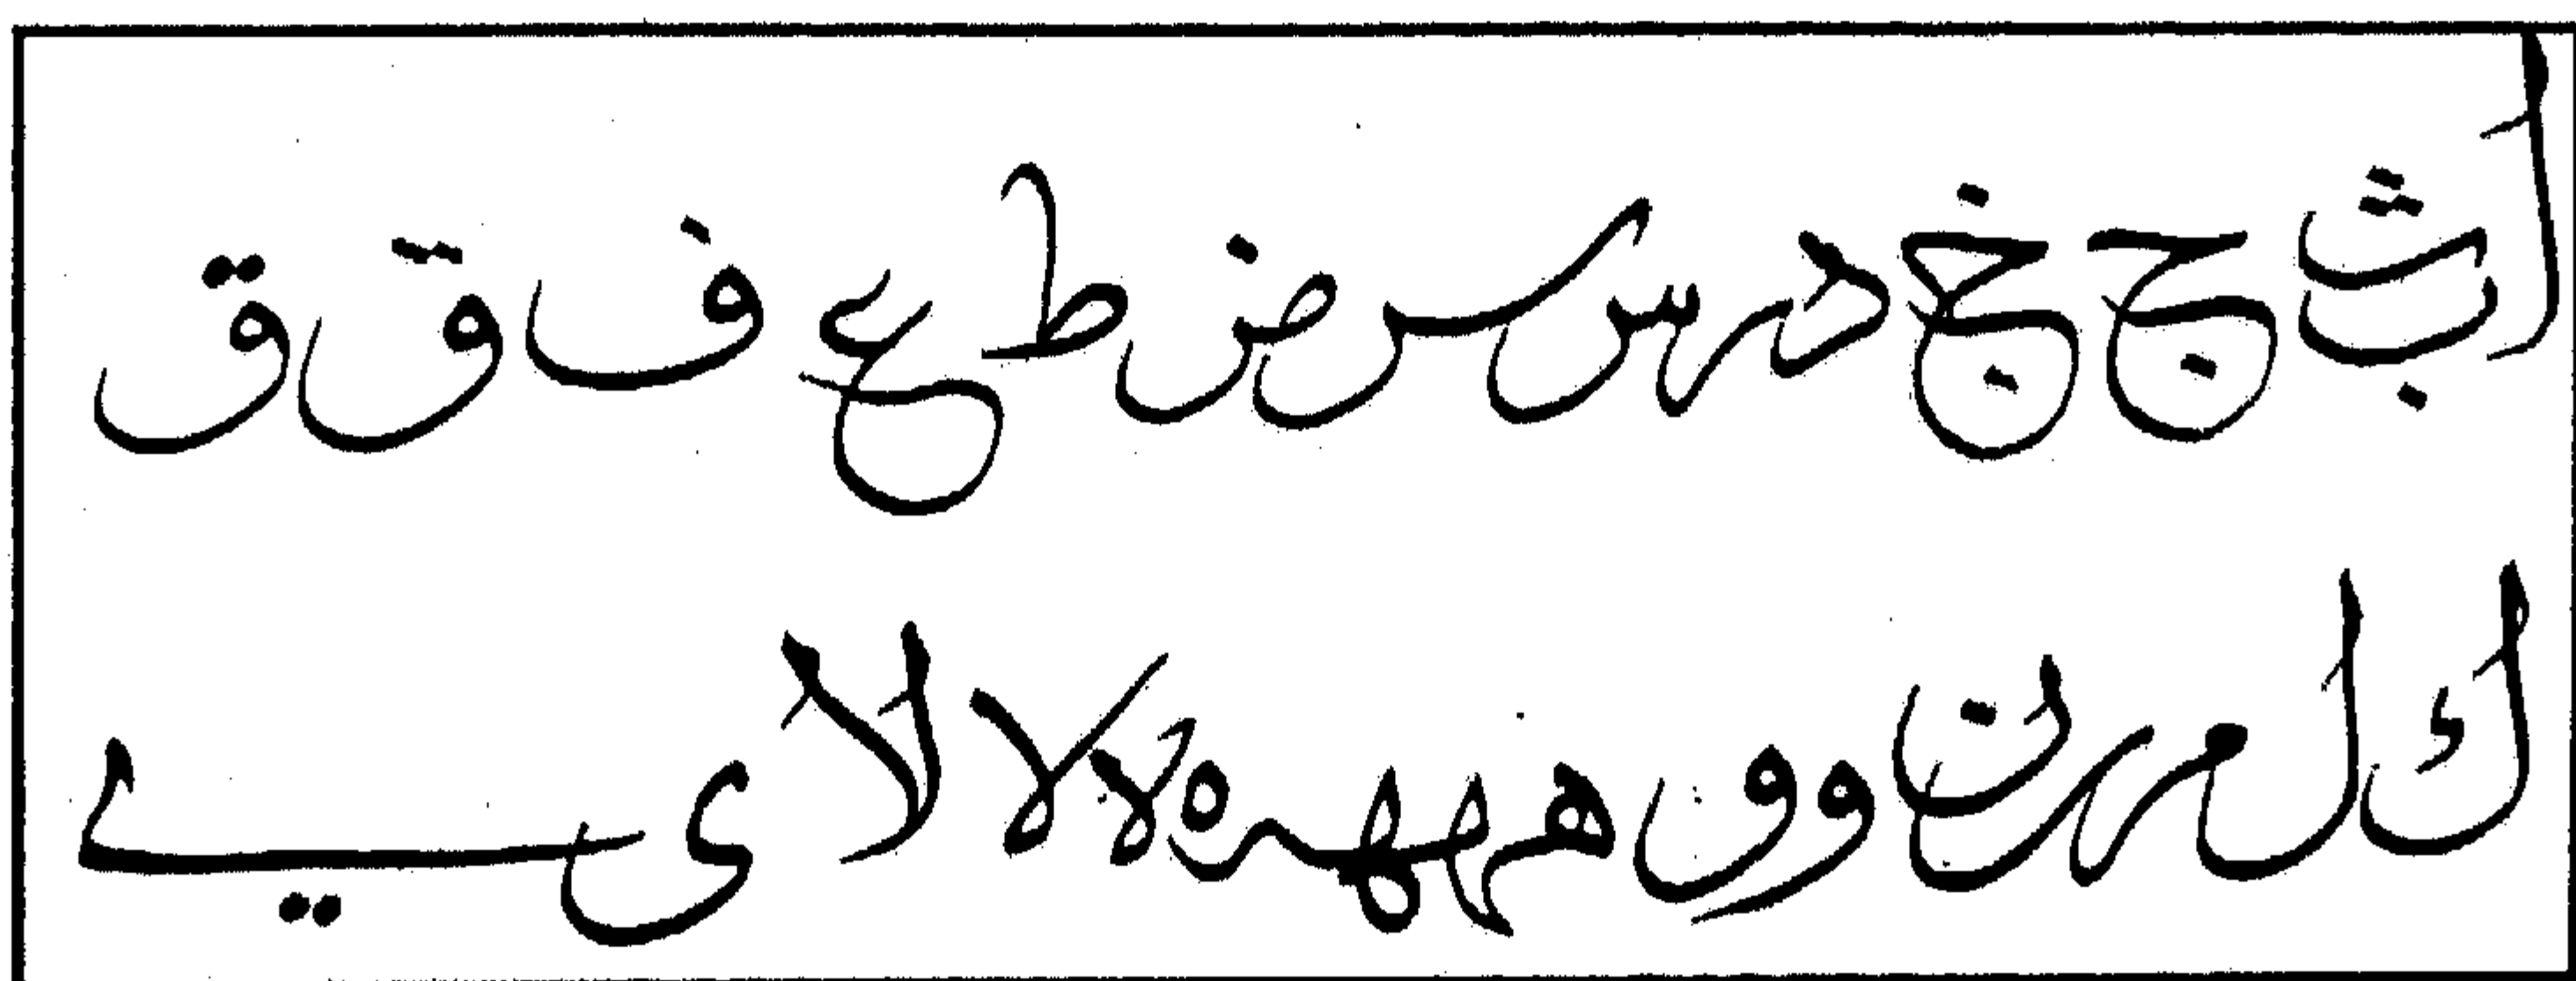 ا ب ث ج خ ج د ر س س ض ط ع ف ق ق
ك ل م ر ن و و ه ه ه ه لا لا لا ى ي